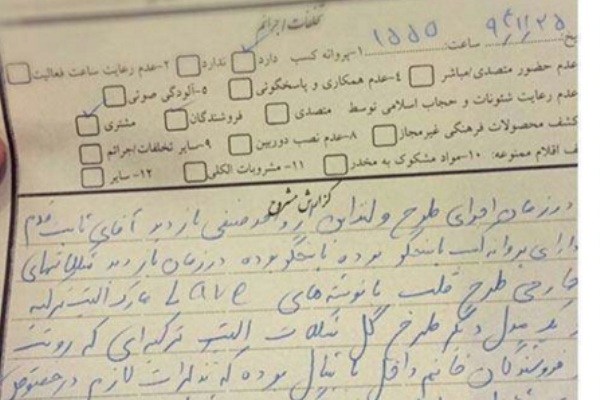 تخلفات / جرائم
ساعت: ۱۵۵۵ ۱-پروانه کسب دارد ندارد ۲-عدم رعایت ساعت فعالیت
عدم حضور متصدی/مباشر ۴-عدم همکاری و پاسخگوئی ۵-آلودگی صوتی
عدم رعایت شئونات و حجاب اسلامی توسط متصدی فروشندگان مشتری
کشف محصولات فرهنگی غیرمجاز ۸-عدم نصب دوربین ۹-سایر تخلفات/جرائم
ف اقلام ممنوعه: ۱۰-مواد مشکوک به مخدر ۱۱-مشروبات الکلی ۱۲- سایر
گزارش مشروح
در زمان اجرای طرح و از واحد صنفی بازدید آقای ثابت قدم
دارای پروانه کسب پاسخگو بوده در زمان بازدید شکلاتهای
خارجی طرح قلب با نوشته‌های Love مارک الیت ترکیه
مدل دیگر طرح گل شکلات الیت ترکیه‌ای که رویت
فروشندگان خانم بوده که تذکرات لازم در خصوص